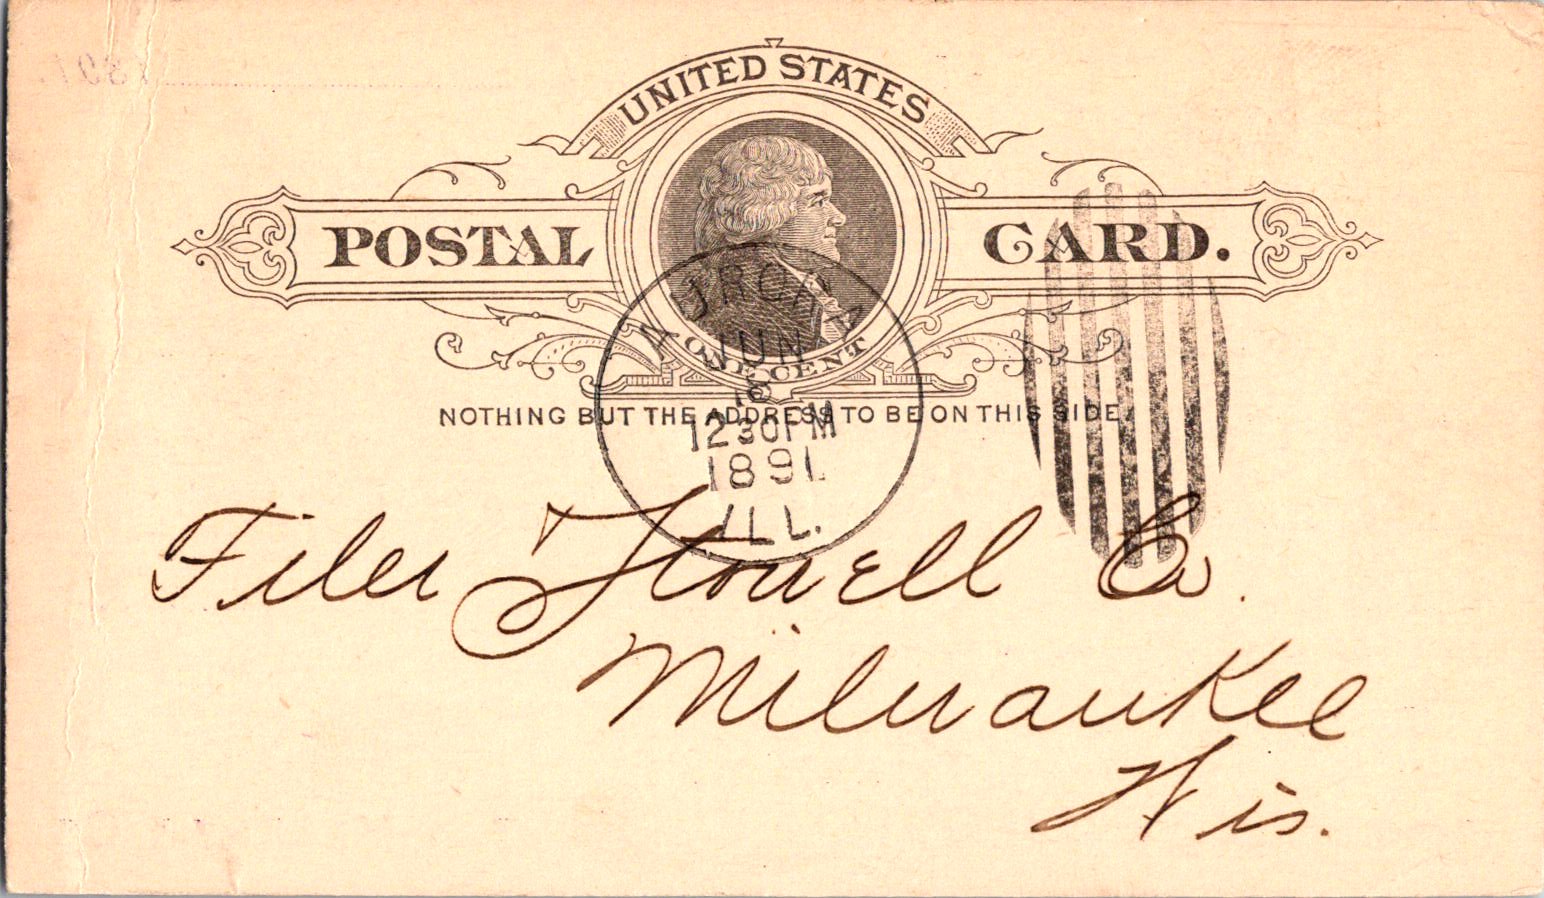 UNITED STATES
POSTAL CARD.
ONE CENT
NOTHING BUT THE ADDRESS TO BE ON THIS SIDE
AURORA
JUN
1230PM
1891
ILL.
Filer Stowell Co.
Milwaukee
Wis.